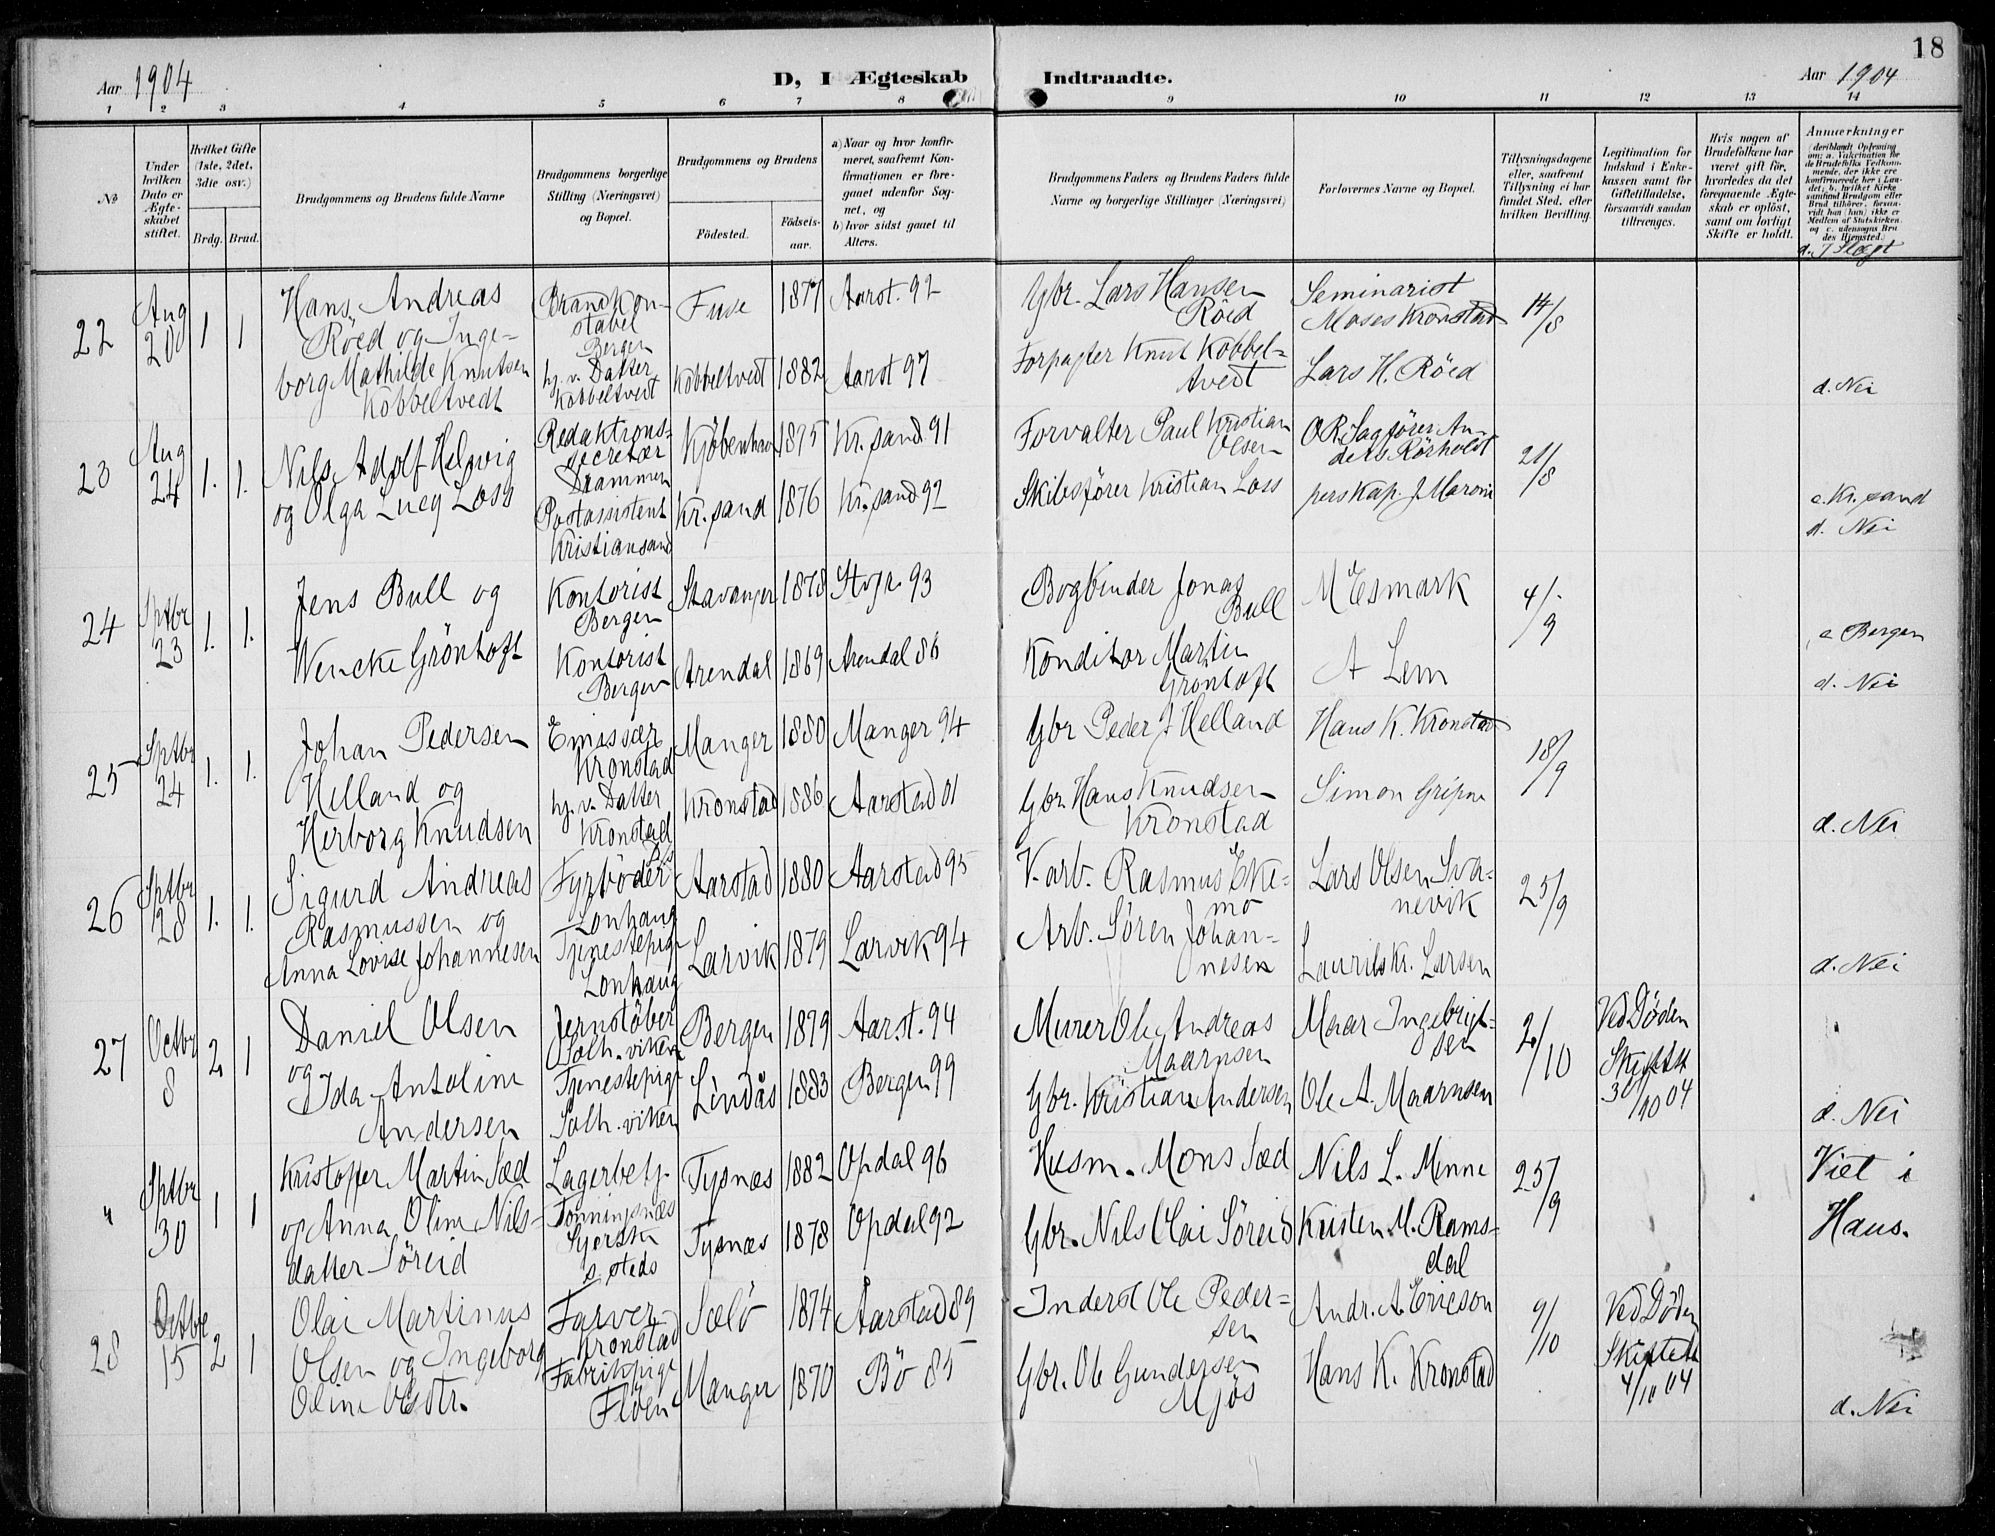 18
Aar 1904
D, I Ægteskab Indtraadte.
Aar 1904
1 2 3 4 5 6 7 8 9 10 11 12 13 14
No
Under hvilken Dato er Ægteskabet stiftet.
Hvilket Gifte (1ste, 2det, 3die osv.)
Brdg. Brud.
Brudgommens og Brudens fulde Navne
Brudgommens borgerlige Stilling (Næringsvei) og Bopæl.
Brudgommens og Brudens
Födested.
Födselsaar.
a) Naar og hvor konfirmeret, saafremt Konfirmationen er foregaaet udenfor Sognet, og
b) hvor sidst gaaet til Alters.
Brudgommens Faders og Brudens Faders fulde Navne og borgerlige Stillinger (Næringsvei)
Forlovernes Navne og Bopæl.
Tillysningsdagene eller, saafremt Tillysning ei har fundet Sted, efter hvilken Bevilling.
Legitimation for Indskud i Enkekassen samt for Giftetilladelse, forsaavidt saadan tiltrænges.
Hvis nogen af Brudefolkene har været gift før, hvorledes da det foregaaende Ægteskab er oplöst, samt om lovligt Skifte er holdt.
Anmerkninger
d. I Slægt
22 Aug 20 1 1
Hans Andreas
Röed og Inge-
borg Mathilde Knutsen
Kobbeltvedt
Brandkon-
stabel
Bergen
hj. v. Datter
Kobbeltvedt
Fuse 1877 Aarst. 92
Kobbeltvedt 1882 Aarst 97
Gbr. Lars Hansen
Röed
Forpagter Knut Kobbel-
tvedt
Seminarist
Moses Kronstad
Lars H. Röed
14/8
d. Nei
23 Aug 24 1. 1.
Nils Adolf Helgvig
og Olga Lucy Loss
Redaktions-
secretær
Drammen
Postassistent
Kristiansand
Kjöbenhavn 1875 Kr.sand 91
Kr.sand 1876 Kr.sand 92
Forvalter Paul Kristian
Olsen
Skibsfører Kristian Loss
OR.Sagfører An-
ders Rörholdt
pers Kap. J Maroni
21/8
c. Kr.sand
d. Nei
24 Sptbr 23 1. 1.
Jens Bull og
Wencke Gröntoft
Kontorist
Bergen
Kontorist
Bergen
Stavanger 1878 Stvgr. 93
Arendal 1869 Arendal 86
Bogbinder Jonas
Bull
Konditor Martin
Gröntoft
M Esmark
A Lem
4/9
c Bergen
d. Nei
25 Sptbr 24 1. 1.
Johan Pedersen
Helland og
Herborg Knudsen
Emissær
Kronstad
hj. v. Datter
Kronstad
Manger 1880 Manger 94
Kronstad 1886 Aarstad 01
Gbr Peder J Helland
Gbr. Hans Knudsen
Kronstad
Hans K. Kronstad
Simon Gripne
18/9
d. Nei
26 Sptbr 28 1. 1.
Sigurd Andreas
Rasmussen og
Anna Lovise Johannesen
Fyrböder
Lonhaug
Tjenestepige
Lonhaug
Aarstad 1880 Aarstad 95
Larvik 1879 Larvik 94
V.arb. Rasmus Eke-
mo
Arb. Sören Johan-
nesen
Lars Olsen Sva-
nevik
Laurits Kr. Larsen
25/9
d. Nei
27 Octbr 8 2. 1
Daniel Olsen
og
Ida Antoline
Andersen
Jernstöber
Solh.viken
Tjenestepige
Solh.viken
Bergen 1879 Aarst. 94
Lindås 1883 Bergen 99
Murer Ole Andreas
Maarnsen
Gbr. Kristian Andersen
Maar Ingebrigt-
sen
Ole A. Maarnsen
2/10
Ved Döden
Skiftet
30/10 04
d. Nei
" Sptbr 30 1 1
Kristoffer Martin Sæd
og Anna Oline Nils-
datter Söreid
Lagerbetj.
Tonningsnæs
Syerske
s. steds
Tysnæs 1882 Opdal 96
Tysnæs 1878 Opdal 92
Husm. Mons Sæd
Gbr. Nils Olai Söreid
Nils L. Minne
Kristen M. Rams-
dal
25/9
Viet i
Haus.
28 Octbr 15 2 1
Olai Martinus
Olsen og Ingeborg
Oline Olsdtr.
Farver
Kronstad
Fabrikpige
Flöen
Sælö 1874 Aarstad 89
Manger 1870 Bö 85
Inderst Ole Peder-
sen
Gbr. Ole Gundersen
Mjös
Andr. A. Ericson
Hans K. Kronstad
9/10
Ved Döden
Skiftet
4/10 04
d. Nei